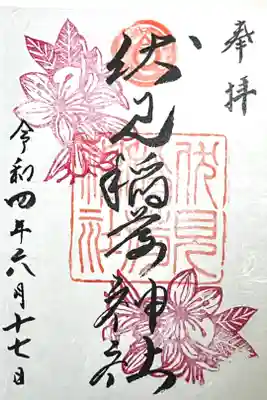 奉拝
伏見稲荷神社
伏見
令和四年六月十七日